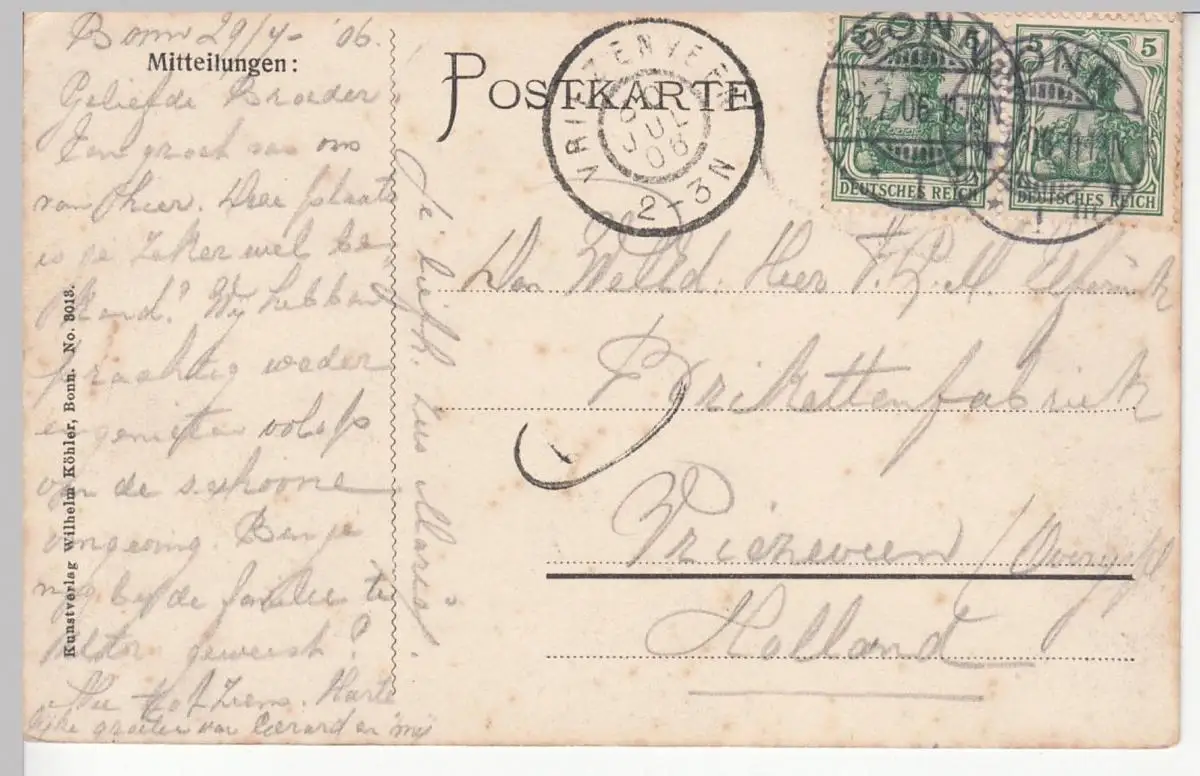 Bonn 29/7-'06.
Mitteilungen:
Geliefde Broeder
Een groet van ons
van hier. Deze plaats
is je zeker wel be-
kend? Wij hebben
prachtig weder
en genieten volop
van de schoone
omgeving. Ben je
nog bij de familie te
geweest?
Harte
lijke groeten van Gerard en mij
Je liefh. Zus Marie.
Kunstverlag Wilhelm Köhler, Bonn. No. 3013.
POSTKARTE
VRIEZENVEEN
30 JUL 06
2-3N
BONN
29.7.06.11-12N
* 1
BONN
DEUTSCHES REICH
5
DEUTSCHES REICH
5
Den Weled. Heer
Brikettenfabriek
Vriezeveen / Overijsl
Holland